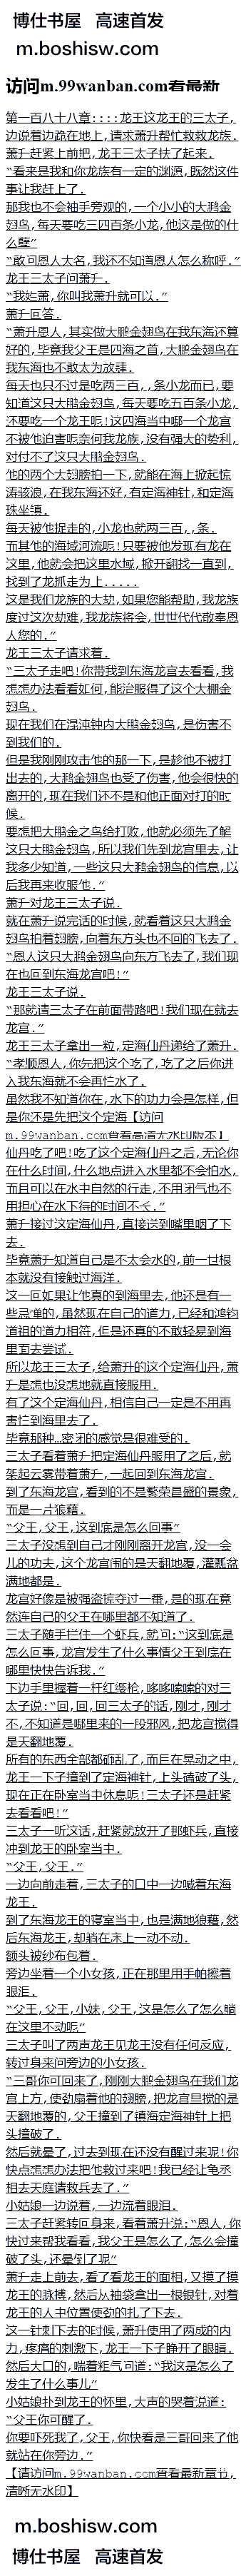 博仕书屋 高速首发
m.boshisw.com
访问m.99wanban.com查看最新
第一百八十八章::::龙王这龙王的三太子,
边说着边跪在地上,请求萧升帮忙救救龙族.
萧升赶紧上前把,龙王三太子扶了起来.
“看来是我和你龙族有一定的渊源,既然这件
事让我赶上了.
那我也不会袖手旁观的,一个小小的大鹅金
翅鸟,每天要吃三四百条小龙,他这是做的什
么孽”
“敢问恩人大名,我还不知道恩人怎么称呼.”
龙王三太子问萧升.
“我姓萧,你叫我萧升就可以.”
萧升回答.
“萧升恩人,其实做大鹏金翅鸟在我东海还算
好的,毕竟我父王是四海之首,大鹏金翅鸟在
我东海也不敢太为放肆.
每天也只不过是吃两三百,,条小龙而已,要
知道这只大鹏金翅鸟,每天要吃五百条小龙,
还要吃一个龙王呢!这四海当中哪一个龙宫
不被他迫害呢奈何我龙族,没有强大的势利,
对付不了这只大鹏金翅鸟.
他的两个大翅膀拍一下,就能在海上掀起惊
涛骇浪,在我东海还好,有定海神针,和定海
珠坐镇.
每天被他捉走的,小龙也就两三百,,条.
而其他的海域河流呢!只要被他发现有龙在
这里,他就会把这里水域,掀开翻找一直到,
找到了龙抓走为上.....
这是我们龙族的大劫,如果您能帮助,我龙族
度过这次劫难,我龙族将会,世世代代敬奉恩
人您的.”
龙王三太子请求着.
“三太子走吧!你带我到东海龙宫去看看,我
想想办法看看如何,能治服得了这个大棚金
翅鸟.
现在我们在混沌钟内大鹏金翅鸟,是伤害不
到我们的.
但是我刚刚攻击他的那一下,是趁他不被打
出去的,大鹅金翅鸟也受了伤害,他会很快的
离开的,现在我们还不是和他正面对打的时
候.
要想把大鹏金之鸟给打败,他就必须先了解
这只大鹏金翅鸟,所以我们先到龙宫里去,让
我多少知道,一些这只大鹅金翅鸟的信息,以
后我再来收服他.”
萧升对龙王三太子说.
就在萧升说完话的时候,就看着这只大鹅金
翅鸟拍着翅膀,向着东方头也不回的飞去了.
“恩人这只大鹅金翅鸟向东方飞去了,我们现
在也回到东海龙宫吧!”
龙王三太子说.
“那就请三太子在前面带路吧!我们现在就去
龙宫.”
龙王三太子拿出一粒,定海仙丹递给了萧升.
“孝顺恩人,你先把这个吃了,吃了之后你进
入我东海就不会再怕水了.
虽然我不知道你在,水下的功力会是怎样,但
是你还是先把这个定海【访问
m.99wanban.com查看高清无水印版本】
仙丹吃了吧!吃了这个定海仙丹之后,无论你
在什么时间,什么地点进入水里都不会怕水,
而且可以在水中自然的行走,不用闭气也不
用担心在水下待的时间不长.”
萧升接过这定海仙丹,直接送到嘴里咽了下
去.
毕竟萧升知道自己是不太会水的,前一世根
本就没有接触过海洋.
这一回如果让他真的到海里去,他还是有一
些忌惮的,虽然现在自己的道力,已经和鸿钧
道祖的道力相符,但是还真的不敢轻易到海
里面去尝试.
所以龙王三太子,给萧升的这个定海仙丹,萧
升是想也没想地就直接服用.
有了这个定海仙丹,相信自己一定是不用再
害怕到海里去了.
毕竟那种…密闭的感觉是很难受的.
三太子看着萧升把定海仙丹服用了之后,就
架起云雾带着萧升,一起回到东海龙宫.
到了东海龙宫,看到的不是繁荣昌盛的景象,
而是一片狼藉.
“父王,父王,这到底是怎么回事”
三太子没想到自己才刚刚离开龙宫,没一会
儿的功夫,这个龙宫闹的是天翻地覆,灌瓢盆
满地都是.
龙宫好像是被强盗掠夺过一番,是的现在竟
然连自己的父王在哪里都不知道了.
三太子随手拦住一个虾兵,就问:“这到底是
怎么回事,龙宫发生了什么事情父王到底在
哪里快快告诉我.”
下边手里握着一杆红缨枪,哆哆嗦嗦的对三
太子说:“回,回,回三太子的话,刚才,刚才
不,不知道是哪里来的一段邪风,把龙宫搅得
是天翻地覆.
所有的东西全部都砸乱了,而且在晃动之中,
龙王一下子撞到了定海神针,上头磕破了头,
现在正在卧室当中休息呢!三太子还是赶紧
去看看吧!”
三太子一听这话,赶紧就放开了那虾兵,直接
冲到龙王的卧室当中.
“父王,父王.”
一边向前走着,三太子的口中一边喊着东海
龙王.
到了东海龙王的寝室当中,也是满地狼藉,然
后东海龙王,却躺在床上一动不动.
额头被纱布包着.
旁边坐着一个小女孩,正在那里用手帕擦着
眼泪.
“父王,父王,小妹,父王,这是怎么了怎么躺
在这里不动呢”
三太子叫了两声龙王见龙王没有任何反应,
转过身来问旁边的小女孩.
“三哥你可回来了,刚刚大鹅金翅鸟在我们龙
宫上方,使劲扇着他的翅膀,把龙宫里搅的是
天翻地覆的,父王撞到了镇海定海神针上把
头撞破了.
然后就晕了,过去到现在还没有醒过来呢!你
快点想想办法把他救过来吧!我已经让龟丞
相去天庭请救兵去了.”
小姑娘一边说着,一边流着眼泪.
三太子赶紧转回身来,看着萧升说:“恩人,你
快过来帮我看看,我父王是怎么了,怎么会撞
破了头,还晕到了呢”
萧升走上前去,看了看龙王的面相,又摸了摸
龙王的脉搏,然后从袖袋拿出一根银针,对着
龙王的人中位置使劲的扎了下去.
这一针刺下去的时候,萧升使用了两成的内
力,疼痛的刺激下,龙王一下子睁开了眼睛.
然后大口的,喘着粗气问道:“我这是怎么了
发生了什么事儿”
小姑娘扑到龙王的怀里,大声的哭着说道:
“父王你可醒了.
你要吓死我了,父王,你快看是三哥回来了他
就站在你旁边.”
【请访问m.99wanban.com查看最新章节,
清晰无水印】
m.boshisw.com
博仕书屋 高速首发